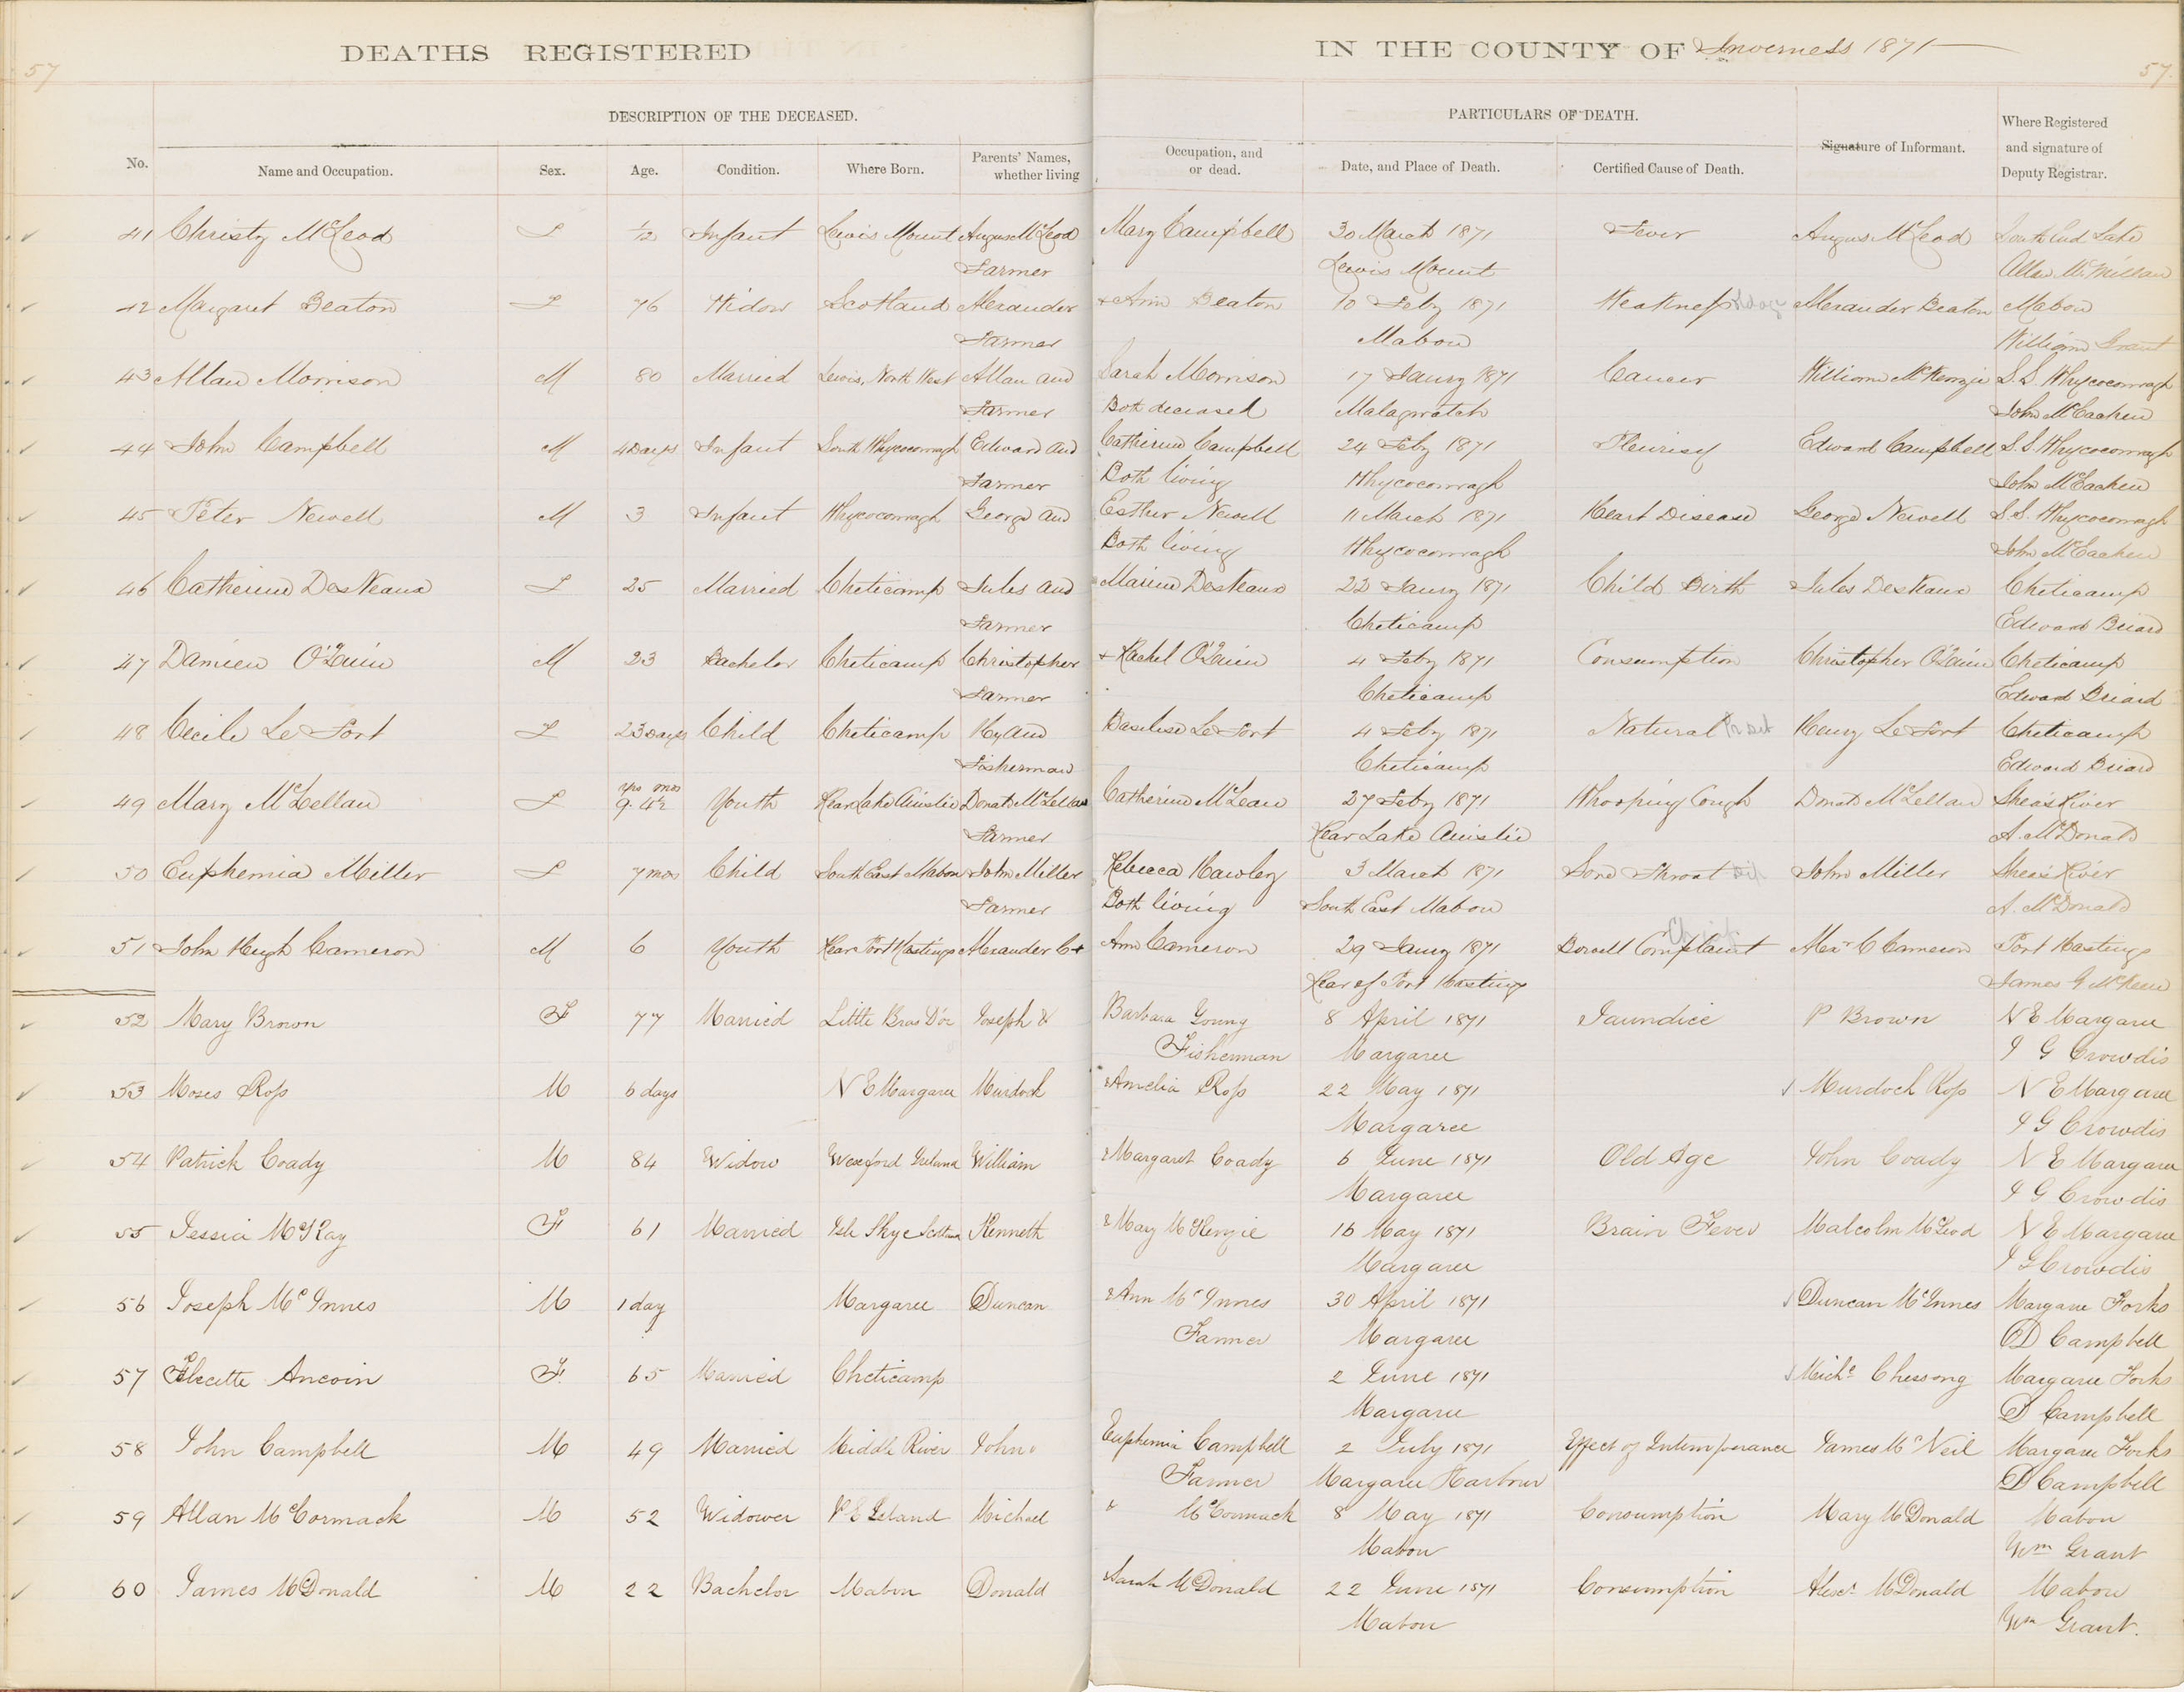 DEATHS REGISTERED IN THE COUNTY OF Inverness 1871
57 57
DESCRIPTION OF THE DECEASED. PARTICULARS OF DEATH.
No. Name and Occupation. Sex. Age. Condition. Where Born. Parents' Names, whether living Occupation, and or dead. Date, and Place of Death. Certified Cause of Death. Signature of Informant. Where Registered and signature of Deputy Registrar.
41 Christy McLeod F 1/12 Infant Lewis Mount Angus McLeod Mary Campbell 30 March 1871 Fever Angus McLeod South End Lake
Farmer Lewis Mount Allan McMillan
42 Margaret Beaton F 76 Widow Scotland Alexander + Ann Beaton 10 Feby 1871 Weakness Alexander Beaton Mabou
Farmer Mabou William Grant
43 Allan Morrison M 80 Married Lewis, North West Allan and Sarah Morrison 17 Jany 1871 Cancer William McKenzie S.S. Whycocomagh
Farmer Both deceased Malagwatch John McEachen
44 John Campbell M 4 Days Infant South Whycocomagh Edward and Catherine Campbell 24 Feby 1871 Pleurisy Edward Campbell S.S. Whycocomagh
Farmer Both living Whycocomagh John McEachen
45 Peter Newell M 3 Infant Whycocomagh George and Esther Newell 11 March 1871 Heart Disease George Newell S.S. Whycocomagh
Both living Whycocomagh John McEachen
46 Catherine DesVeaux F 25 Married Cheticamp Jules and Marine DesVeaux 22 Jany 1871 Child Birth Jules DesVeaux Cheticamp
Farmer Cheticamp Edward Briard
47 Damien O'Quin M 23 Bachelor Cheticamp Christopher + Rachel O'Quin 4 Feby 1871 Consumption Christopher O'Quin Cheticamp
Farmer Cheticamp Edward Briard
48 Cecile Le Fort F 23 days Child Cheticamp Hy and Basilise Le Fort 4 Feby 1871 Natural Henry Le Fort Cheticamp
Fisherman Cheticamp Edward Briard
49 Mary McLellan F yrs mos 9. 4½ Youth Rear Lake Ainslie Donald McLellan Catherine McLean 27 Feby 1871 Whooping Cough Donald McLellan Sheas River
Farmer Rear Lake Ainslie A. McDonald
50 Euphemia Miller F 7 mos Child South East Mabou John Miller Rebecca Hawley 3 March 1871 Sore Throat John Miller Sheas River
Farmer Both living South East Mabou A. McDonald
51 John Hugh Cameron M 6 Youth Rear Port Hastings Alexander C + Ann Cameron 29 Jany 1871 Bowell Complaint Alexr C Cameron Port Hastings
Rear of Port Hastings James G McKeen
52 Mary Brown F 77 Married Little Bras D'or Joseph & Barbara Young 8 April 1871 Jaundice P Brown N E Margaree
Fisherman Margaree I G Crowdis
53 Moses Ross M 6 days N E Margaree Murdoch & Amelia Ross 22 May 1871 Murdoch Ross N E Margaree
Margaree I G Crowdis
54 Patrick Coady M 84 Widow Wexford Ireland William & Margaret Coady 6 June 1871 Old Age John Coady N E Margaree
Margaree I G Crowdis
55 Jessia McKay F 61 Married Isle Skye Scotland Kenneth & Mary McKenzie 16 May 1871 Brain Fever Malcolm McLeod N E Margaree
Margaree I G Crowdis
56 Joseph McInnes M 1 day Margaree Duncan & Ann McInnes 30 April 1871 Duncan McInnes Margaree Forks
Farmer Margaree D Campbell
57 Ancoin F. 65 Married Cheticamp 2 June 1871 Miche Chessong Margaree Forks
Margaree D Campbell
58 John Campbell M 49 Married Middle River John & Euphemia Campbell 2 July 1871 Effect of Intemperance James McNeil Margaree Forks
Farmer Margaree Harbour D Campbell
59 Allan McCormack M 52 Widower P E Island Michael & McCormack 8 May 1871 Consumption Mary McDonald Mabou
Mabou Wm Grant
60 James McDonald M 22 Bachelor Mabou Donald Sarah McDonald 22 June 1871 Consumption Alexr McDonald Mabou
Mabou Wm Grant.